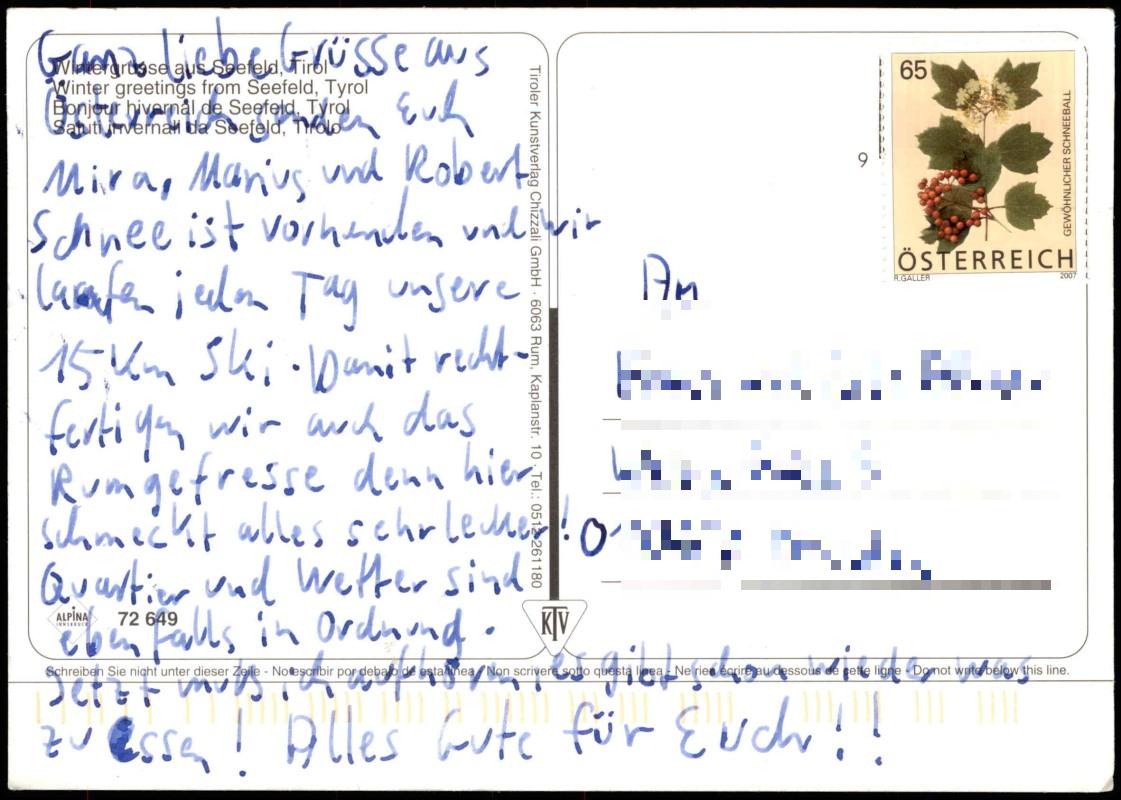 Ganz liebe Grüsse aus
Österreich senden Euch
Mira, Marius und Robert
Schnee ist vorhanden und wir
laufen jeden Tag unsere
15 Km Ski. Damit recht-
fertigen wir auch das
Rumgefresse denn hier
schmeckt alles sehr lecker!
Quartier und Wetter sind
ebenfalls in Ordnung.
Jetzt muß ich aufhören, es gibt schon wieder was
zu Essen! Alles Gute für Euch!!
Wintergrüsse aus Seefeld, Tirol
Winter greetings from Seefeld, Tyrol
Bonjour hivernal de Seefeld, Tyrol
Saluti invernali da Seefeld, Tirolo
Tiroler Kunstverlag Chizzali GmbH · 6063 Rum, Kaplanstr. 10 · Tel.: 0512/261180
ALPINA
INNSBRUCK
72 649
KTV
Schreiben Sie nicht unter dieser Zeile - No escribir por debajo de esta línea - Non scrivere sotto questa linea - Ne rien écrire au dessous de cette ligne - Do not write below this line.
9
65
GEWÖHNLICHER SCHNEEBALL
ÖSTERREICH
R.GALLER 2007
An